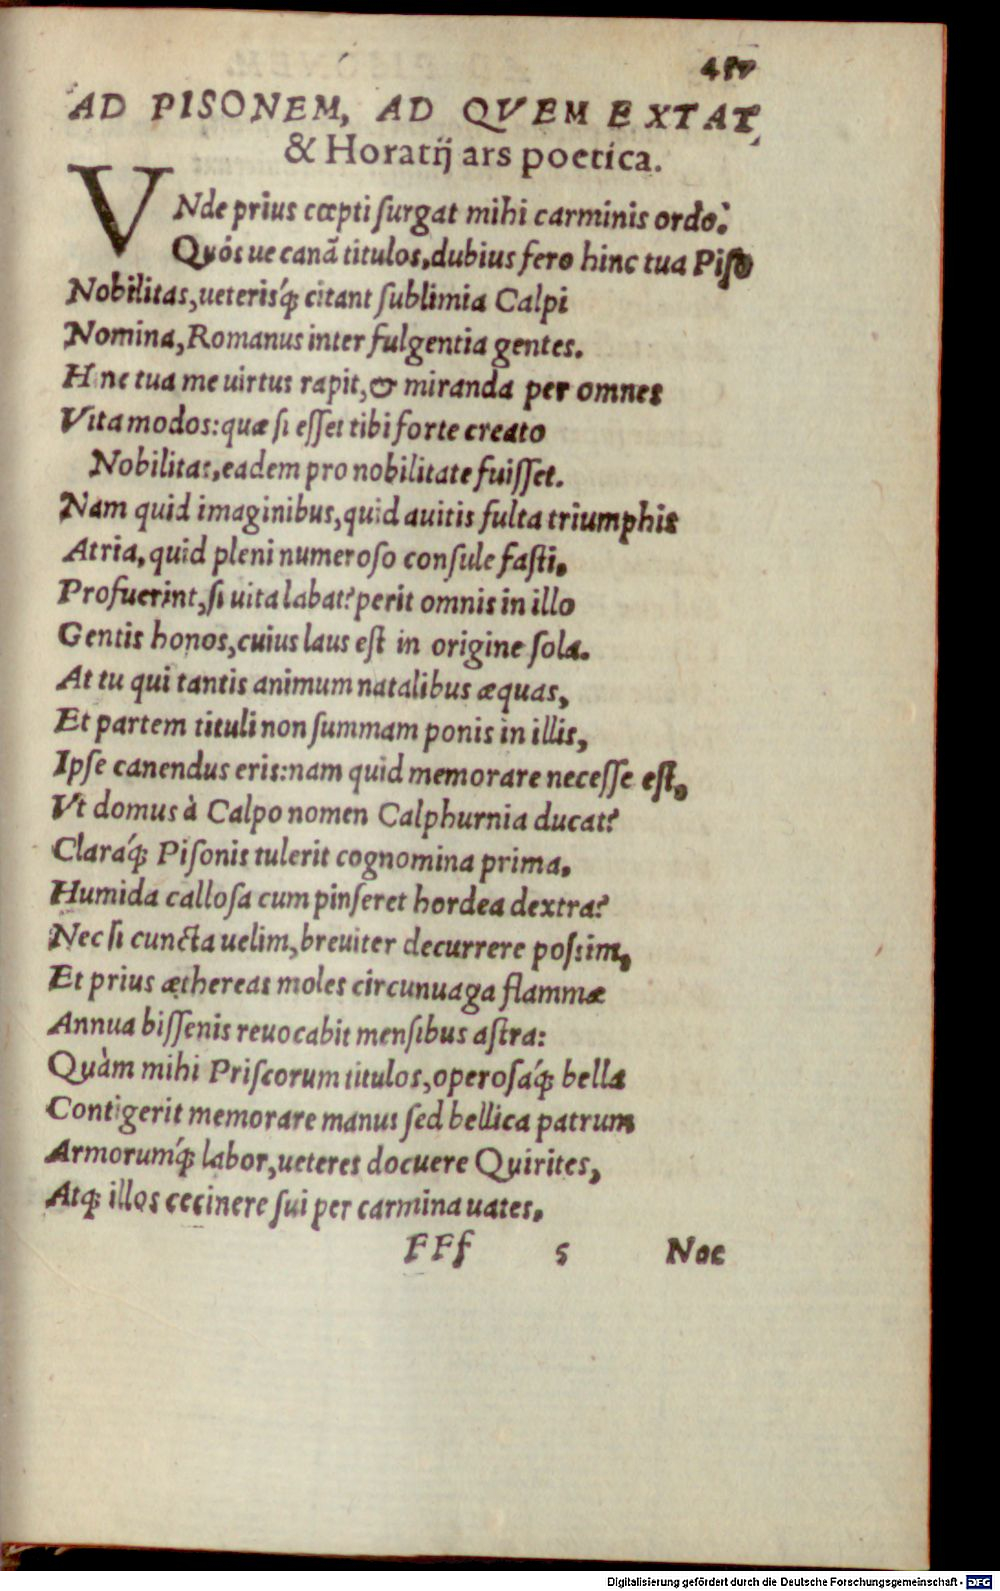 AD PISONEM, AD QVEM EXTAT
& Horatij ars poetica.
VNde prius cœpti ſurgat mihi carminis ordo?
Quós ue canā titulos, dubius fero hinc tua Piſo
Nobilitas, ueterisq́; citant ſublimia Calpi
Nomina, Romanus inter fulgentia gentes.
Hinc tua me uirtus rapit, & miranda per omnes
Vita modos: quæ ſi eſſet tibi forte creato
Nobilitas, eadem pro nobilitate fuiſſet.
Nam quid imaginibus, quid auitis fulta triumphis
Atria, quid pleni numeroſo conſule faſti,
Profuerint, ſi uita labat? perit omnis in illo
Gentis honos, cuius laus eſt in origine ſola.
At tu qui tantis animum natalibus æquas,
Et partem tituli non ſummam ponis in illis,
Ipſe canendus eris: nam quid memorare neceſſe eſt,
Vt domus à Calpo nomen Calphurnia ducat?
Claraq́; Piſonis tulerit cognomina prima,
Humida calloſa cum pinſeret hordea dextra?
Nec ſi cuncta uelim, breuiter decurrere poſsim,
Et prius æthereas moles circunuaga flammæ
Annua biſſenis reuocabit menſibus aſtra:
Quàm mihi Priſcorum titulos, operoſaq́; bella
Contigerit memorare manus ſed bellica patrum
Armorumq́; labor, ueteres docuere Quirites,
Atq; illos cecinere ſui per carmina uates.
FFf 5 Noc
Digitalisierung gefördert durch die Deutsche Forschungsgemeinschaft - DFG